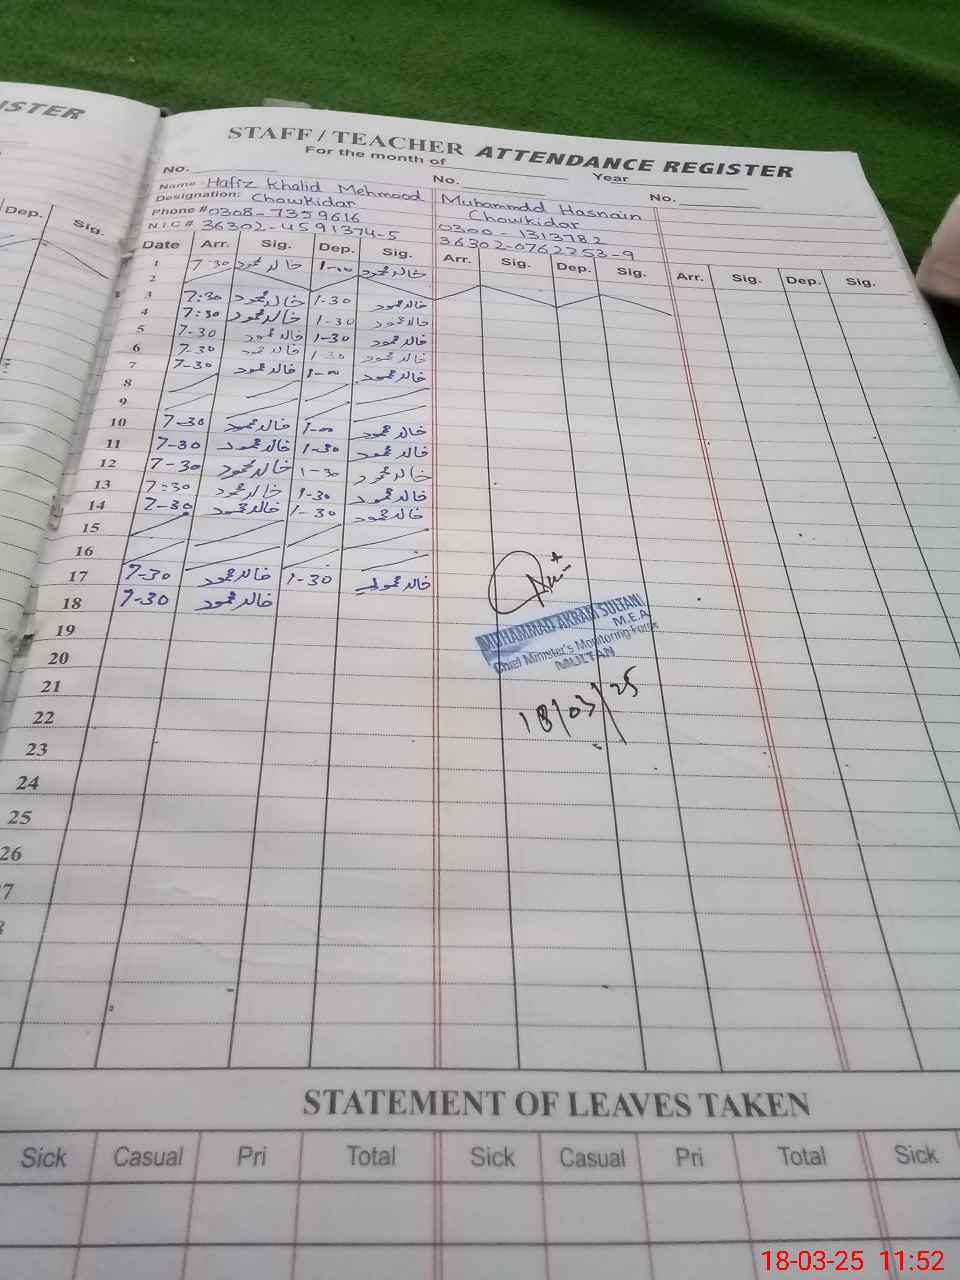 ISTER
Dep. Sig.
STAFF / TEACHER ATTENDANCE REGISTER
For the month of Year
No. No. No.
Name Hafiz Khalid Mehmood Muhammdd Hasnain
Designation: Chowkidar Chowkidar
Phone # 0308-7359616 0300-1313782
N.I.C # 36302-4591374-5 36302-0762253-9
Date Arr. Sig. Dep. Sig. Arr. Sig. Dep. Sig. Arr. Sig. Dep. Sig.
1 7-30 خالد محمود 1-00 خالد محمود
2
3 7:30 خالد محمود 1-30 خالد محمود
4 7:30 خالد محمود 1-30 خالد محمود
5 7-30 خالد محمود 1-30 خالد محمود
6 7-30 خالد محمود 1-30 خالد محمود
7 7-30 خالد محمود 1-00 خالد محمود
8
9
10 7-30 خالد محمود 1-00 خالد محمود
11 7-30 خالد محمود 1-30 خالد محمود
12 7-30 خالد محمود 1-30 خالد محمود
13 7:30 خالد محمود 1-30 خالد محمود
14 7-30 خالد محمود 1-30 خالد محمود
15
16
17 7-30 خالد محمود 1-30 خالد
18 7-30 خالد محمود
MUHAMMAD AKRAM SULTANI
M.E.A
Chief Minister's Monitoring Force
MULTAN
19
20
21
18/03/25
22
23
24
25
26
7
STATEMENT OF LEAVES TAKEN
Sick Casual Pri Total Sick Casual Pri Total Sick
18-03-25 11:52